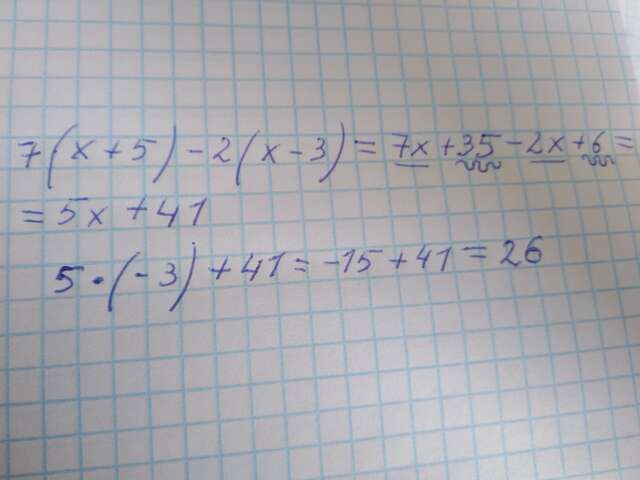 7(x+5)-2(x-3)=7x+35-2x+6=
=5x+41
5·(-3)+41=-15+41=26